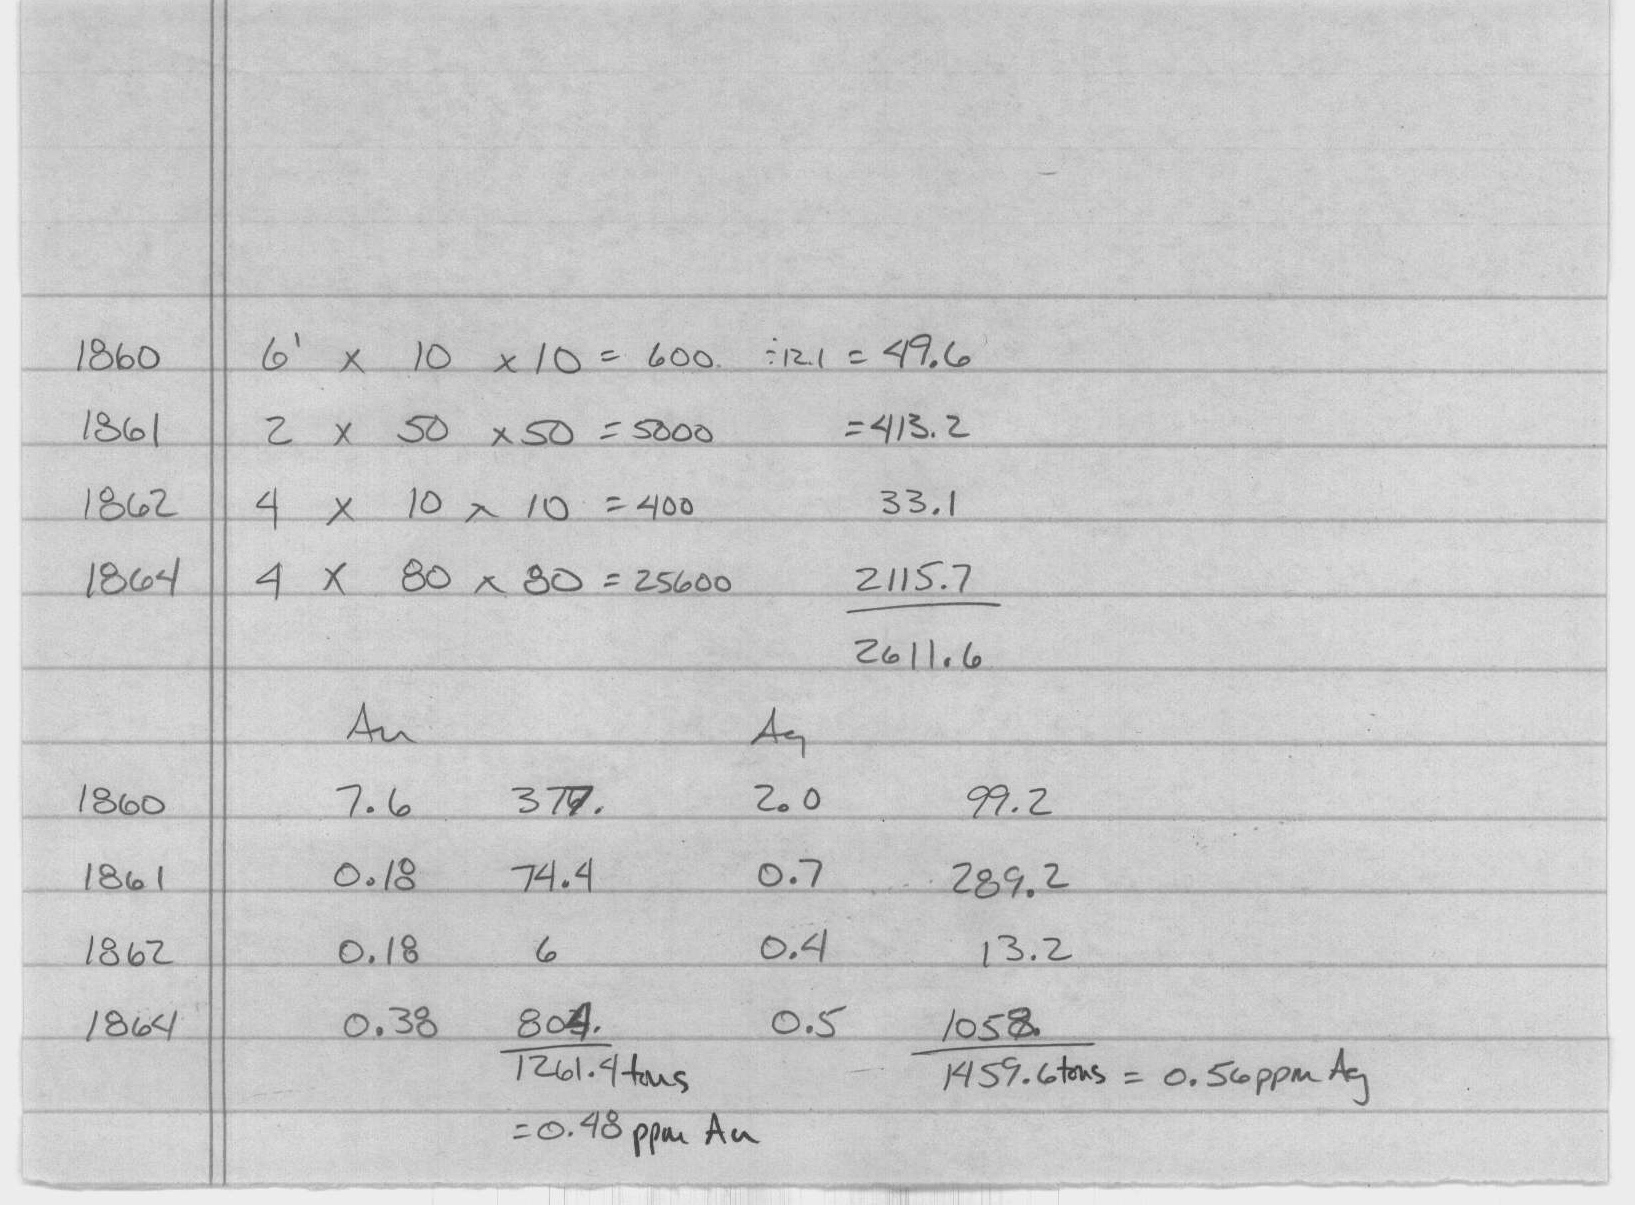 1860 6' x 10 x 10 = 600. ÷12.1 = 49.6
1861 2 x 50 x 50 = 5000 = 413.2
1862 4 x 10 x 10 = 400 33.1
1864 4 x 80 x 80 = 25600 2115.7
2611.6
Au Ag
1860 7.6 377. 2.0 99.2
1861 0.18 74.4 0.7 289.2
1862 0.18 6 0.4 13.2
1864 0.38 804. 0.5 1058.
1261.4 tons 1459.6 tons = 0.56 ppm Ag
= 0.48 ppm Au